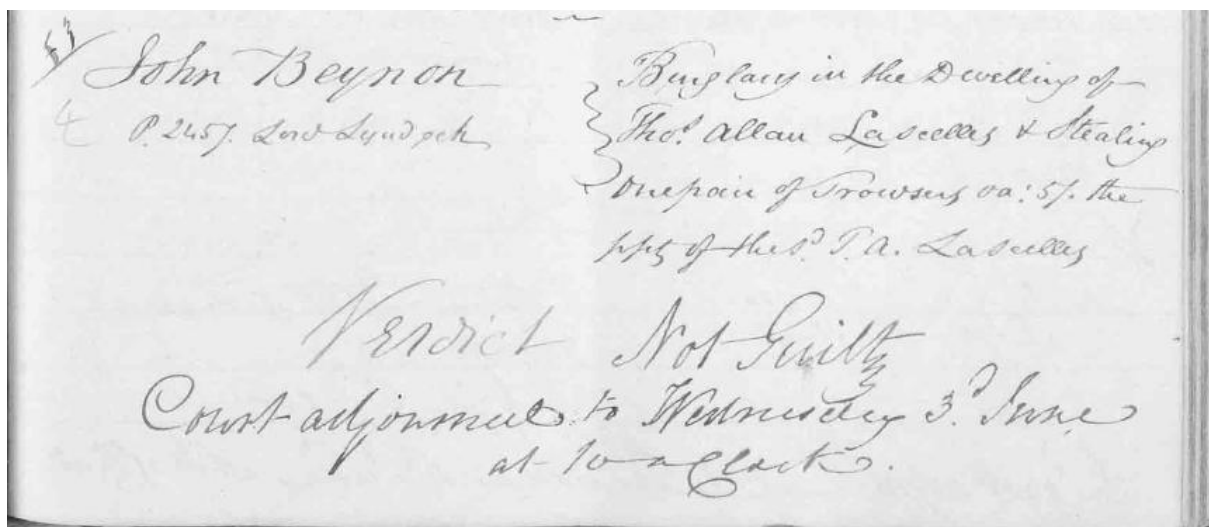 John Beynon
P. 2457. Lord Lyndoch
Burglary in the Dwelling of
Thos. Allan Lascelles & Stealing
one pair of Trowsers va: 5/. the
ppty of the sd. T. A. Lascelles
Verdict Not Guilty
Court adjourned to Wednesday 3d. June
at 10 o Clock.